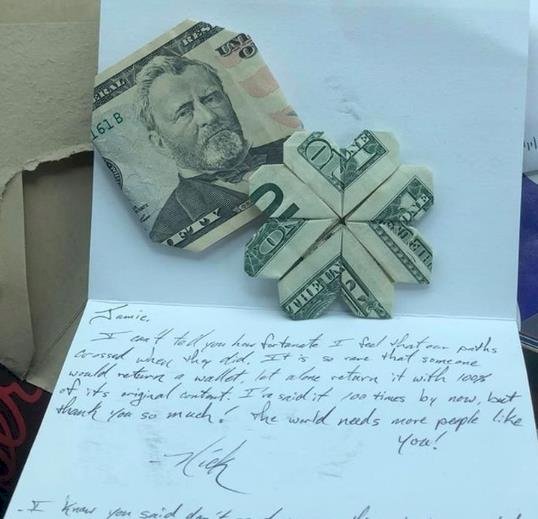 ERAL RES
UNI
O
161B
FIFTY
ONE
ONE
Jamie,
I can't tell you how fortunate I feel that our paths
crossed when they did. It is so rare that someone
would return a wallet, let alone return it with 100%
of its original content. I've said it 100 times by now, but
thank you so much! The world needs more people like
you!
Nick
- I know you said don't